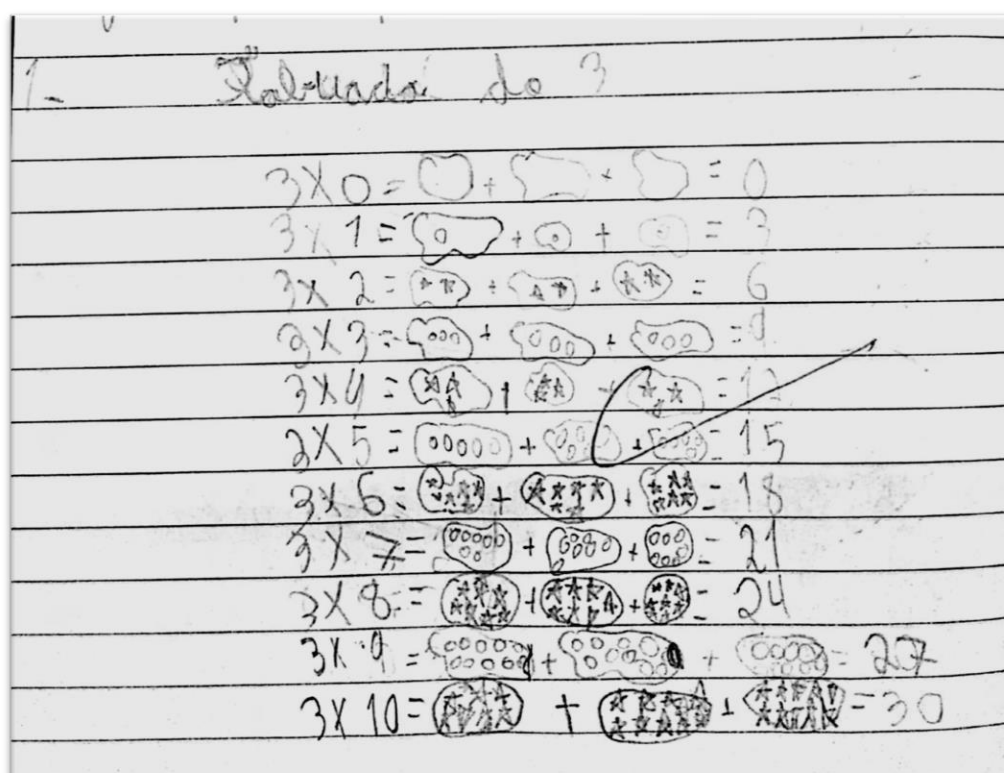 1- Tabuada do 3
3 X 0 = + + = 0
3 X 1 = + + = 3
3 X 2 = + + = 6
3 X 3 = + + = 9
3 X 4 = + + = 12
3 X 5 = + + = 15
3 X 6 = + + = 18
3 X 7 = + + = 21
3 X 8 = + + = 24
3 X 9 = + + = 27
3 X 10 = + + = 30